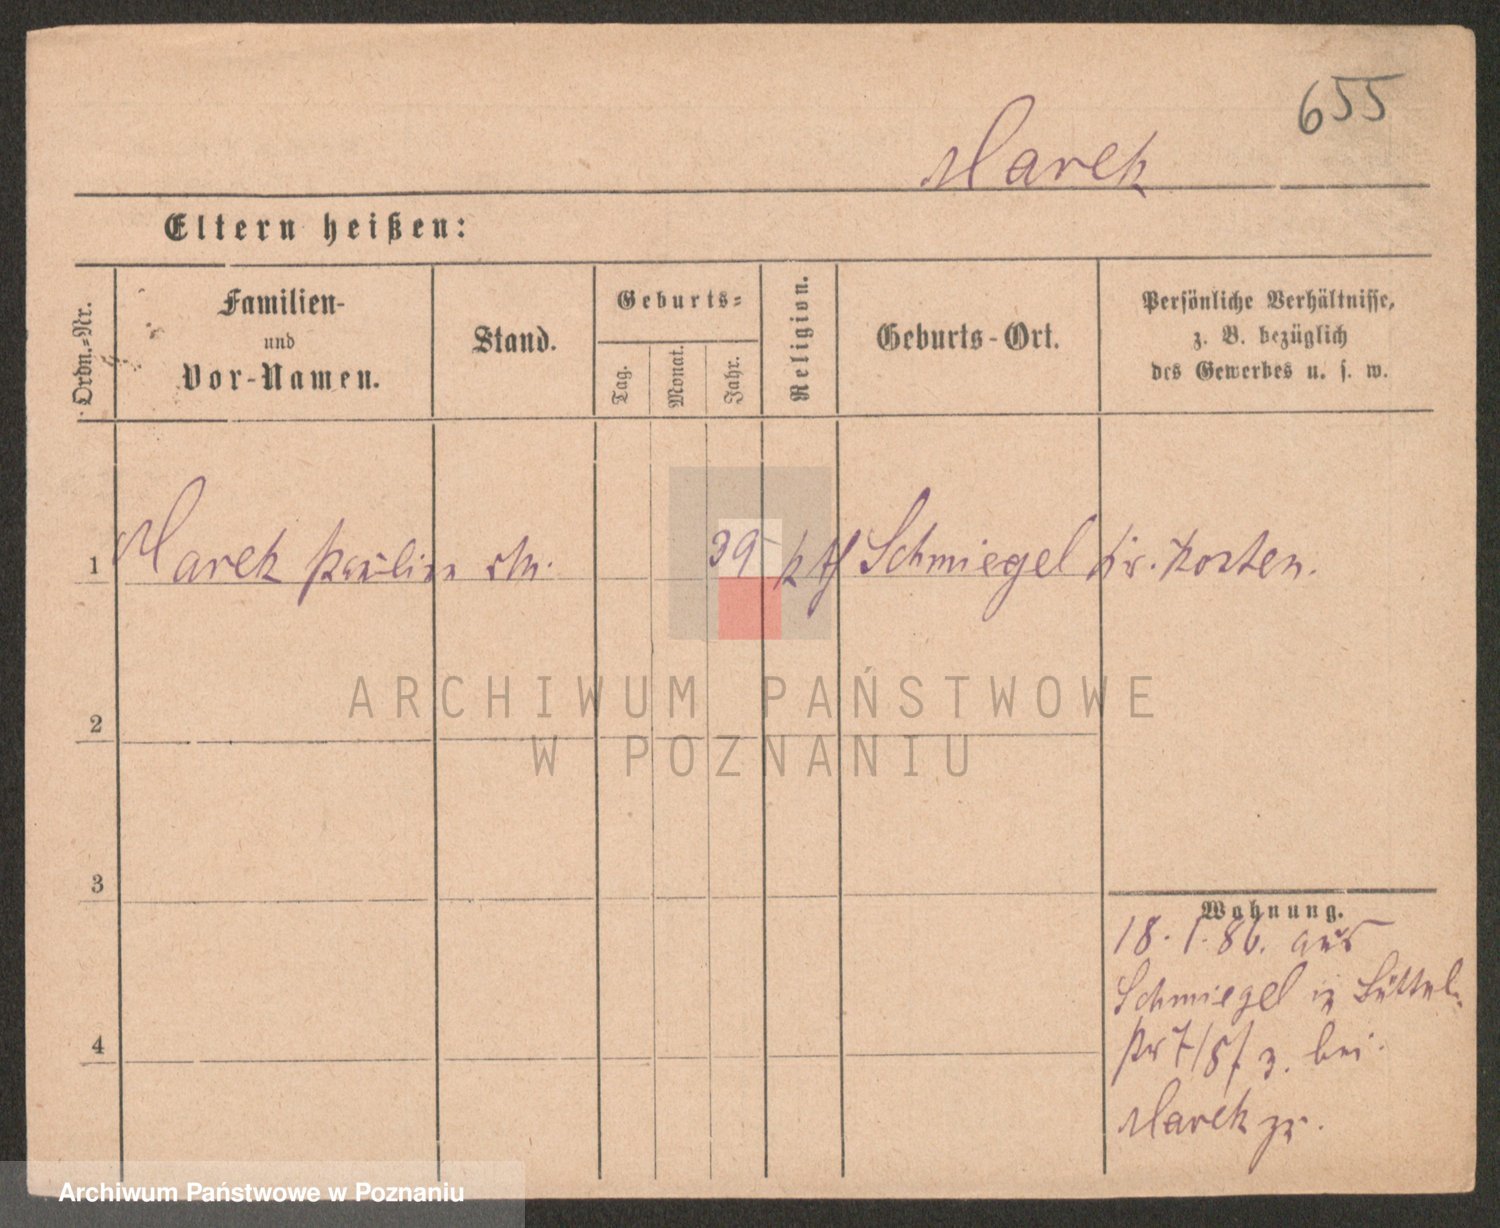 655
Marek
Eltern heißen:
Ordn.-Nr.
Familien-
und
Vor-Namen.
Stand.
Geburts-
Tag.
Monat.
Jahr.
Religion.
Geburts-Ort.
Persönliche Verhältnisse,
z. B. bezüglich
des Gewerbes u. s. w.
1 Marek Paulin 39 kth Schmiegel Kr. Kosten.
2
3
4
Wohnung.
18. 1. 86. aus
Schmiegel in Büttel-
str 7/8 bei
Marek zr.
ARCHIWUM PAŃSTWOWE
W POZNANIU
Archiwum Państwowe w Poznaniu